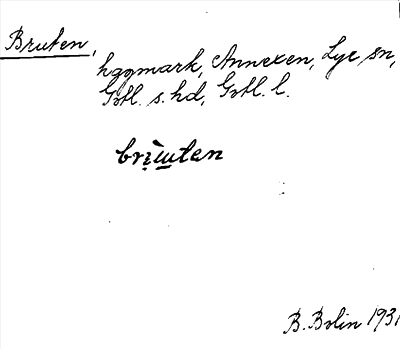 Bruten,
hygmark, Annexen, Lye sn,
Gotl. s. hd, Gotl. l.
brìu̲ten
B. Bolin 1931